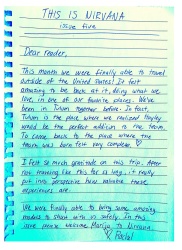 THIS IS NIRVANA
issue five
Dear Reader,
This month we were finally able to travel
outside of the United States! It felt
amazing to be back at it, doing what we
love, in one of our favorite places. We've
been in Tulum together before. In fact,
Tulum is the place where we realized Hayley
would be the perfect addition to the team.
To come back to the place where the
team was born felt very complete
I felt so much gratitude on this trip. After
not traveling like this for so long, it really
put into perspective how valuable these
experiences are.
We were finally able to bring some amazing
models to share with us safely. In this
issue please welcome to Nirvana.